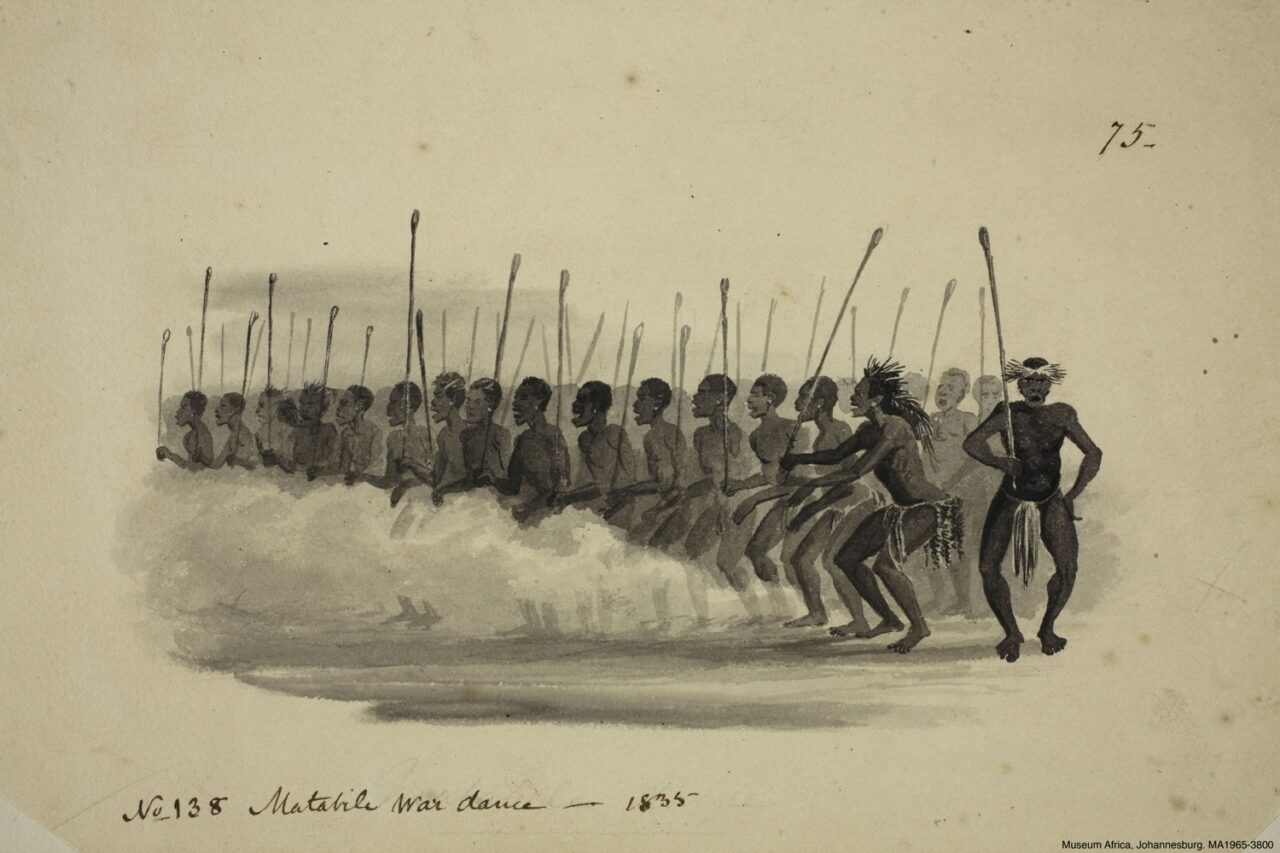 75-
No 138 Matabile War dance — 1835
Museum Africa, Johannesburg. MA1965-3800